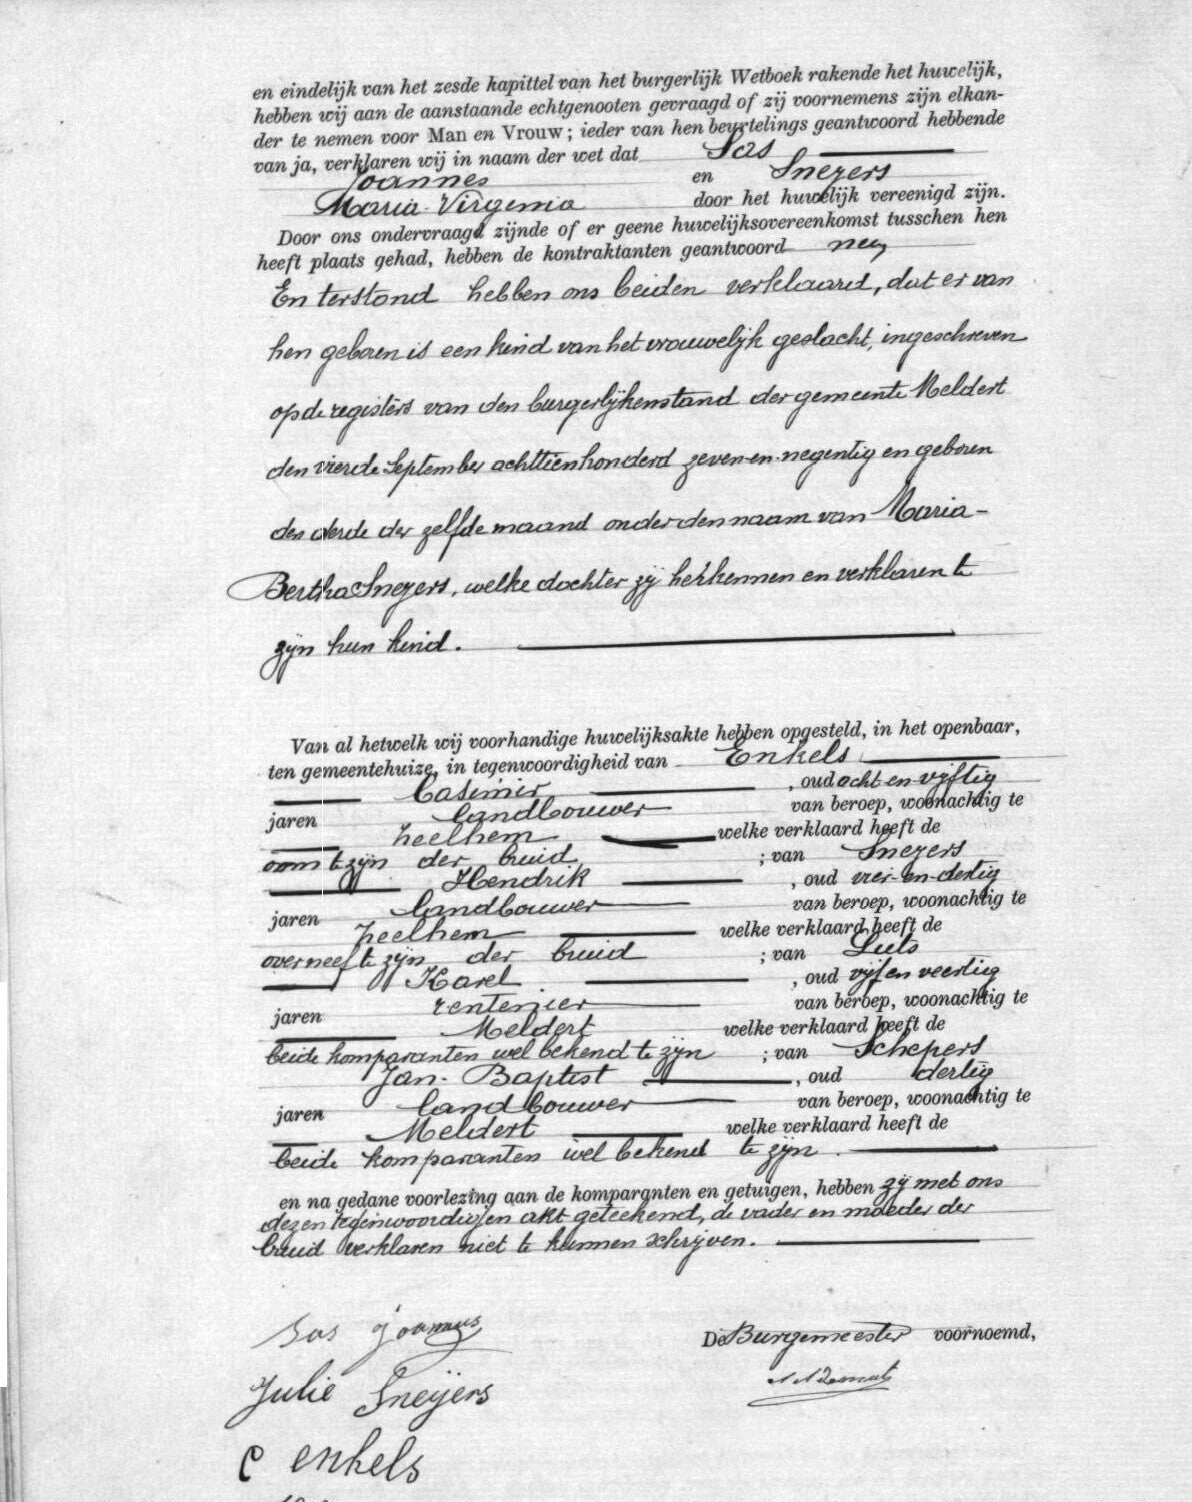 en eindelijk van het zesde kapittel van het burgerlijk Wetboek rakende het huwelijk,
hebben wij aan de aanstaande echtgenooten gevraagd of zij voornemens zijn elkan-
der te nemen voor Man en Vrouw; ieder van hen beurtelings geantwoord hebbende
van ja, verklaren wij in naam der wet dat Sas
Joannes en Sneyers
Maria Virginia door het huwelijk vereenigd zijn.
Door ons ondervraagd zijnde of er geene huwelijksovereenkomst tusschen hen
heeft plaats gehad, hebben de kontraktanten geantwoord neen
En terstond hebben ons beiden verklaard, dat er van
hen geboren is een kind van het vrouwelijk geslacht, ingeschreven
op de registers van den burgerlijkenstand der gemeente Meldert
den vierde September achttienhonderd zeven-en-negentig en geboren
den derde der zelfde maand onder den naam van Maria-
Bertha Sneyers, welke dochter zij herkennen en verklaren te
zijn hun kind.
Van al hetwelk wij voorhandige huwelijksakte hebben opgesteld, in het openbaar,
ten gemeentehuize, in tegenwoordigheid van Enkels
Casimir , oud acht en vijftig
jaren landbouwer van beroep, woonachtig te
Zeelhem welke verklaard heeft de
oom te zijn der bruid ; van Sneyers
Hendrik , oud vier-en-dertig
jaren landbouwer van beroep, woonachtig te
Zeelhem welke verklaard heeft de
overneef te zijn der bruid ; van Luts
Karel , oud vijf en veertig
jaren rentenier van beroep, woonachtig te
Meldert welke verklaard heeft de
beide komparanten wel bekend te zijn ; van Schepers
Jan-Baptist , oud dertig
jaren landbouwer van beroep, woonachtig te
Meldert welke verklaard heeft de
beide komparanten wel bekend te zijn.
en na gedane voorlezing aan de kompargnten en getuigen, hebben zij met ons
dezen tegenwoordigen akt geteekend, de vader en moeder der
bruid verklaren niet te kunnen schrijven.
Sas Joannes
De Burgemeester voornoemd,
Julie Sneijers
C enkels